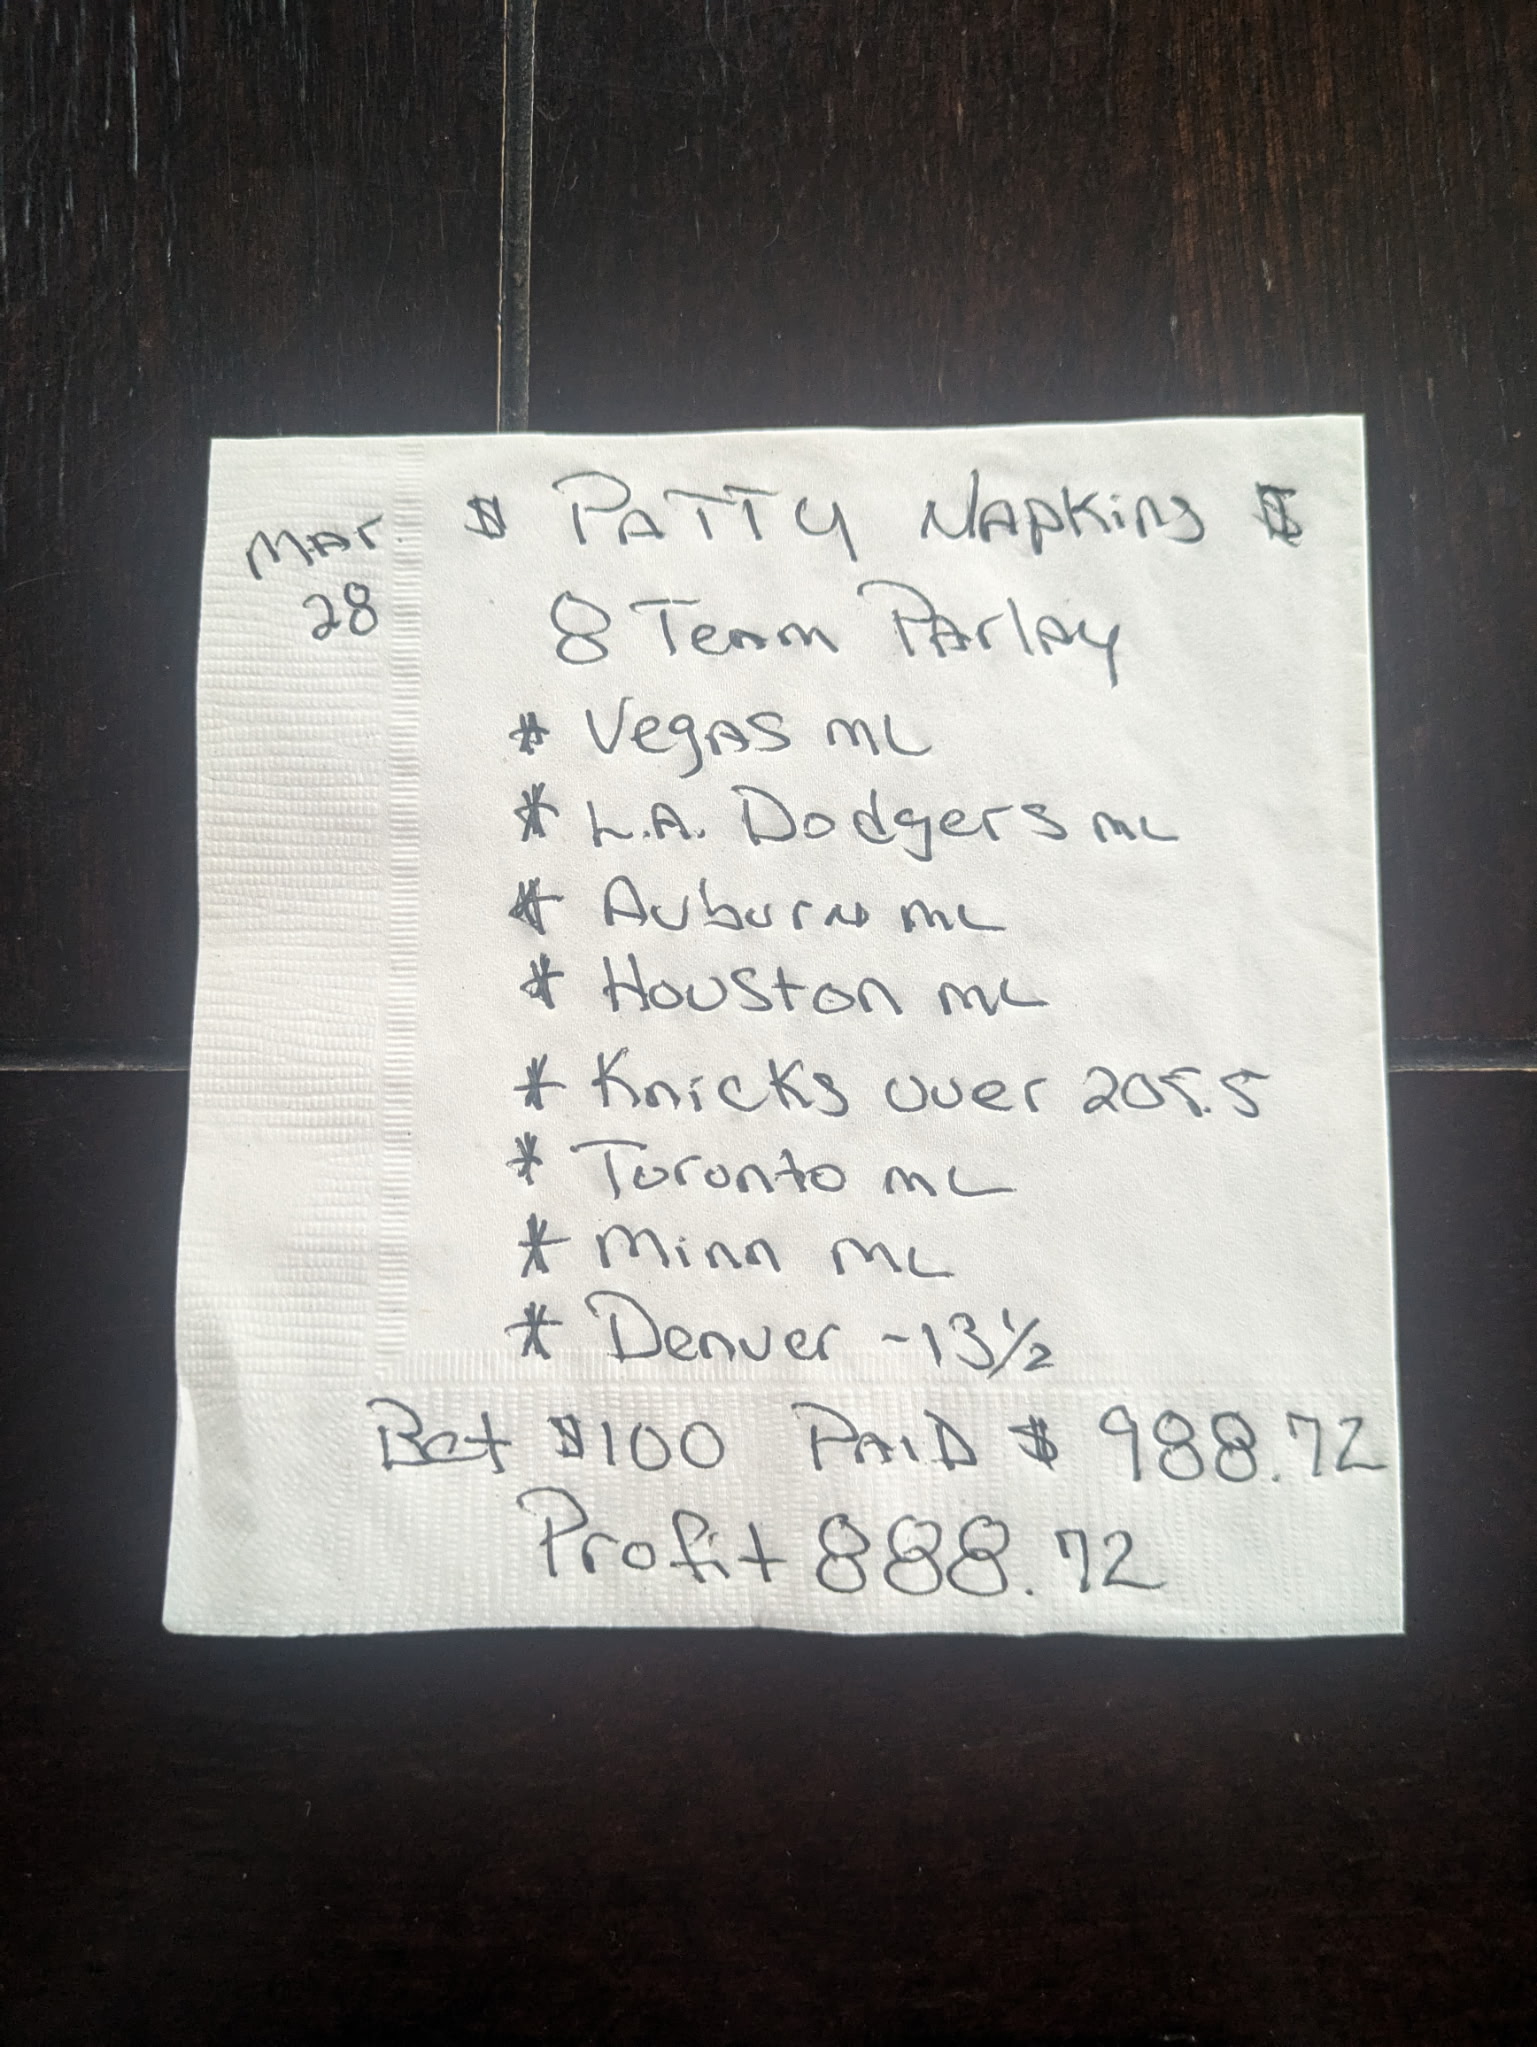 Mar. 28
$ Patty Napkins $
8 Team Parlay
* Vegas ML
* L.A. Dodgers ML
* Auburn ML
* Houston ML
* Knicks over 205.5
* Toronto ML
* Minn ML
* Denver -13½
Bet $100 Paid $988.72
Profit 888.72